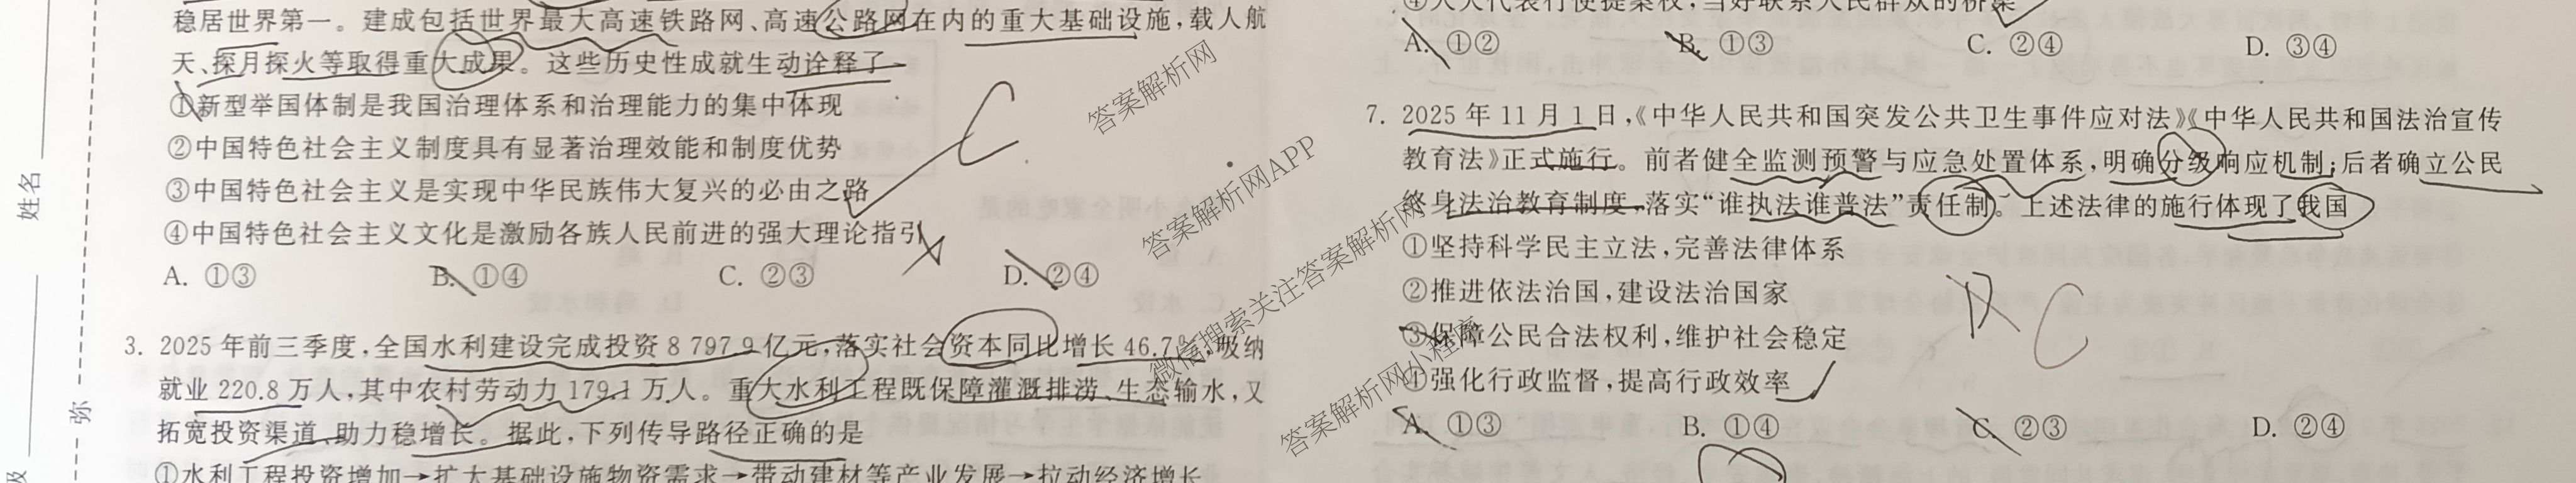 稳居世界第一。建成包括世界最大高速铁路网、高速公路网在内的重大基础设施，载人航
天、探月探火等取得重大成果。这些历史性成就生动诠释了
①新型举国体制是我国治理体系和治理能力的集中体现
②中国特色社会主义制度具有显著治理效能和制度优势
③中国特色社会主义是实现中华民族伟大复兴的必由之路
④中国特色社会主义文化是激励各族人民前进的强大理论指引
A. ①③ B. ①④ C. ②③ D. ②④
C
3. 2025年前三季度，全国水利建设完成投资8 797.9亿元，落实社会资本同比增长46.7%，吸纳
就业220.8万人，其中农村劳动力179.1万人。重大水利工程既保障灌溉排涝、生态输水，又
拓宽投资渠道、助力稳增长。据此，下列传导路径正确的是
①水利工程投资增加→扩大基础设施物资需求→带动建材等产业发展→拉动经济增长
姓名
弥
级
④人大代表行使提案权，当好联系人民群众的桥梁
A. ①② B. ①③ C. ②④ D. ③④
7. 2025年11月1日，《中华人民共和国突发公共卫生事件应对法》《中华人民共和国法治宣传
教育法》正式施行。前者健全监测预警与应急处置体系，明确分级响应机制；后者确立公民
终身法治教育制度，落实“谁执法谁普法”责任制。上述法律的施行体现了我国
①坚持科学民主立法，完善法律体系
②推进依法治国，建设法治国家
③保障公民合法权利，维护社会稳定
④强化行政监督，提高行政效率
C
A. ①③ B. ①④ C. ②③ D. ②④
答案解析网
答案解析网APP
微信搜索关注答案解析网
答案解析网小程序